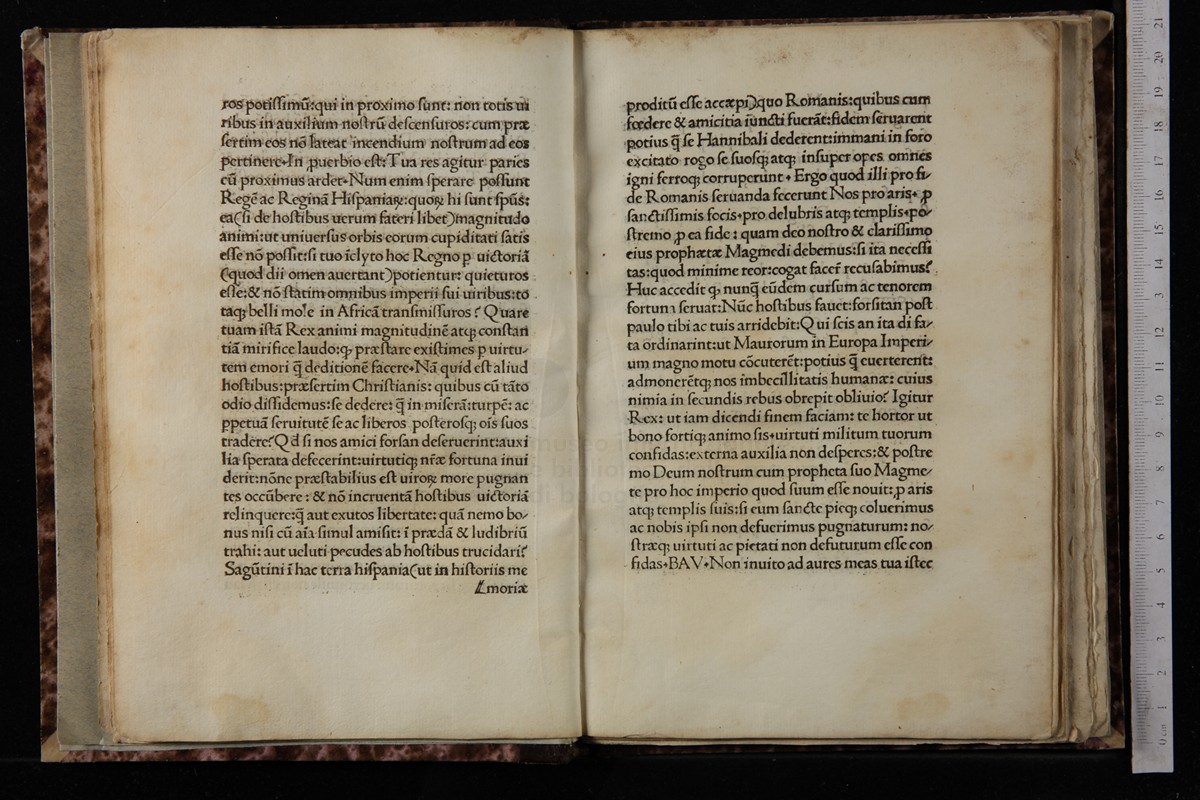 ros potissimũ:qui in proximo sunt: non totis ui
ribus in auxilium nostrũ descensuros: cum præ
sertim eos nõ lateat incendium nostrum ad eos
pertinere•In ꝓuerbio est: Tua res agitur paries
cũ proximus ardet•Num enim sperare possunt
Regẽ ac Reginã Hispaniaꝝ:quoꝝ hi sunt spũs:
ea(si de hostibus uerum fateri libet)magnitudo
animi:ut uniuersus orbis eorum cupiditati satis
esse nõ possit:si tuo iclyto hoc Regno p uictoriã
(quod dii omen auertant)potientur: quieturos
esse:& nõ statim omnibus imperii sui uiribus:to
taqꝫ belli mole in Africã transmissuros? Quare
tuam istã Rex animi magnitudinẽ atqꝫ constan
tiã mirifice laudo:ꝙ præstare existimes p uirtu/
tem emori q̃ deditionẽ facere•Nã quid est aliud
hostibus:præsertim Christianis: quibus cũ tãto
odio dissidemus:se dedere: q̃ in miserã:turpẽ: ac
ppetuã seruitutẽ se ac liberos posterosqꝫ oĩs suos
tradere?Qd si nos amici forsan deseruerint:auxi
lia sperata defecerint:uirtutiqꝫ nr̃æ fortuna inui
derit:nõne præstabilius est uiroꝝ more pugnan
tes occũbere: & nõ incruentã hostibus uictoriã
relinquere:q̃ aut exutos libertate: quã nemo bo/
nus nisi cũ aĩa simul amisit: ĩ prædã & ludibriũ
trahi: aut ueluti pecudes ab hostibus trucidari?
Sagũtini ĩ hac terra hispania(ut in historiis me
moriæ
proditũ esse accæpi)quo Romanis:quibus cum
fœdere & amicitia iuncti fuerãt:fidem seruarent
potius q̃ se Hannibali dederent:immani in foro
excitato rogo se suosqꝫ atqꝫ insuper opes omnes
igni ferroqꝫ corruperunt• Ergo quod illi pro fi/
de Romanis seruanda fecerunt Nos pro aris•ꝓ
sanctissimis focis•pro delubris atqꝫ templis•po/
stremo ꝓ ea fide: quam deo nostro & clarissimo
eius prophætæ Magmedi debemus:si ita necessi
tas:quod minime reor:cogat facer̃ recusabimus?
Huc accedit ꝙ nunq̃ eũdem cursum ac tenorem
fortuna seruat:Nũc hostibus fauet:forsitan post
paulo tibi ac tuis arridebit:Qui scis an ita di fa/
ta ordinarint:ut Maurorum in Europa Imperi/
um magno motu cõcuterẽt:potius q̃ euerterent:
admonerẽtqꝫ nos imbecillitatis humanæ: cuius
nimia in secundis rebus obrepit obliuio? Igitur
Rex: ut iam dicendi finem faciam: te hortor ut
bono fortiqꝫ animo sis•uirtuti militum tuorum
confidas:externa auxilia non desperes:& postre
mo Deum nostrum cum propheta suo Magme/
te pro hoc imperio quod suum esse nouit:ꝓ aris
atqꝫ templis suis:si eum sancte pieqꝫ coluerimus
ac nobis ipsi non defuerimus pugnaturum: no/
stræqꝫ uirtuti ac pietati non defuturum esse con
fidas•BAV•Non inuito ad aures meas tua istec